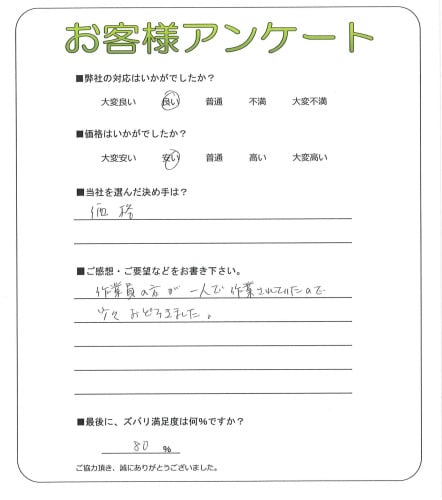 お客様アンケート
■弊社の対応はいかがでしたか?
大変良い 良い 普通 不満 大変不満
■価格はいかがでしたか?
大変安い 安い 普通 高い 大変高い
■当社を選んだ決め手は?
価格
■ご感想・ご要望などをお書き下さい。
作業員の方が一人で作業されていたので
少々おどろきました。
■最後に、ズバリ満足度は何%ですか?
80 %
ご協力頂き、誠にありがとうございました。